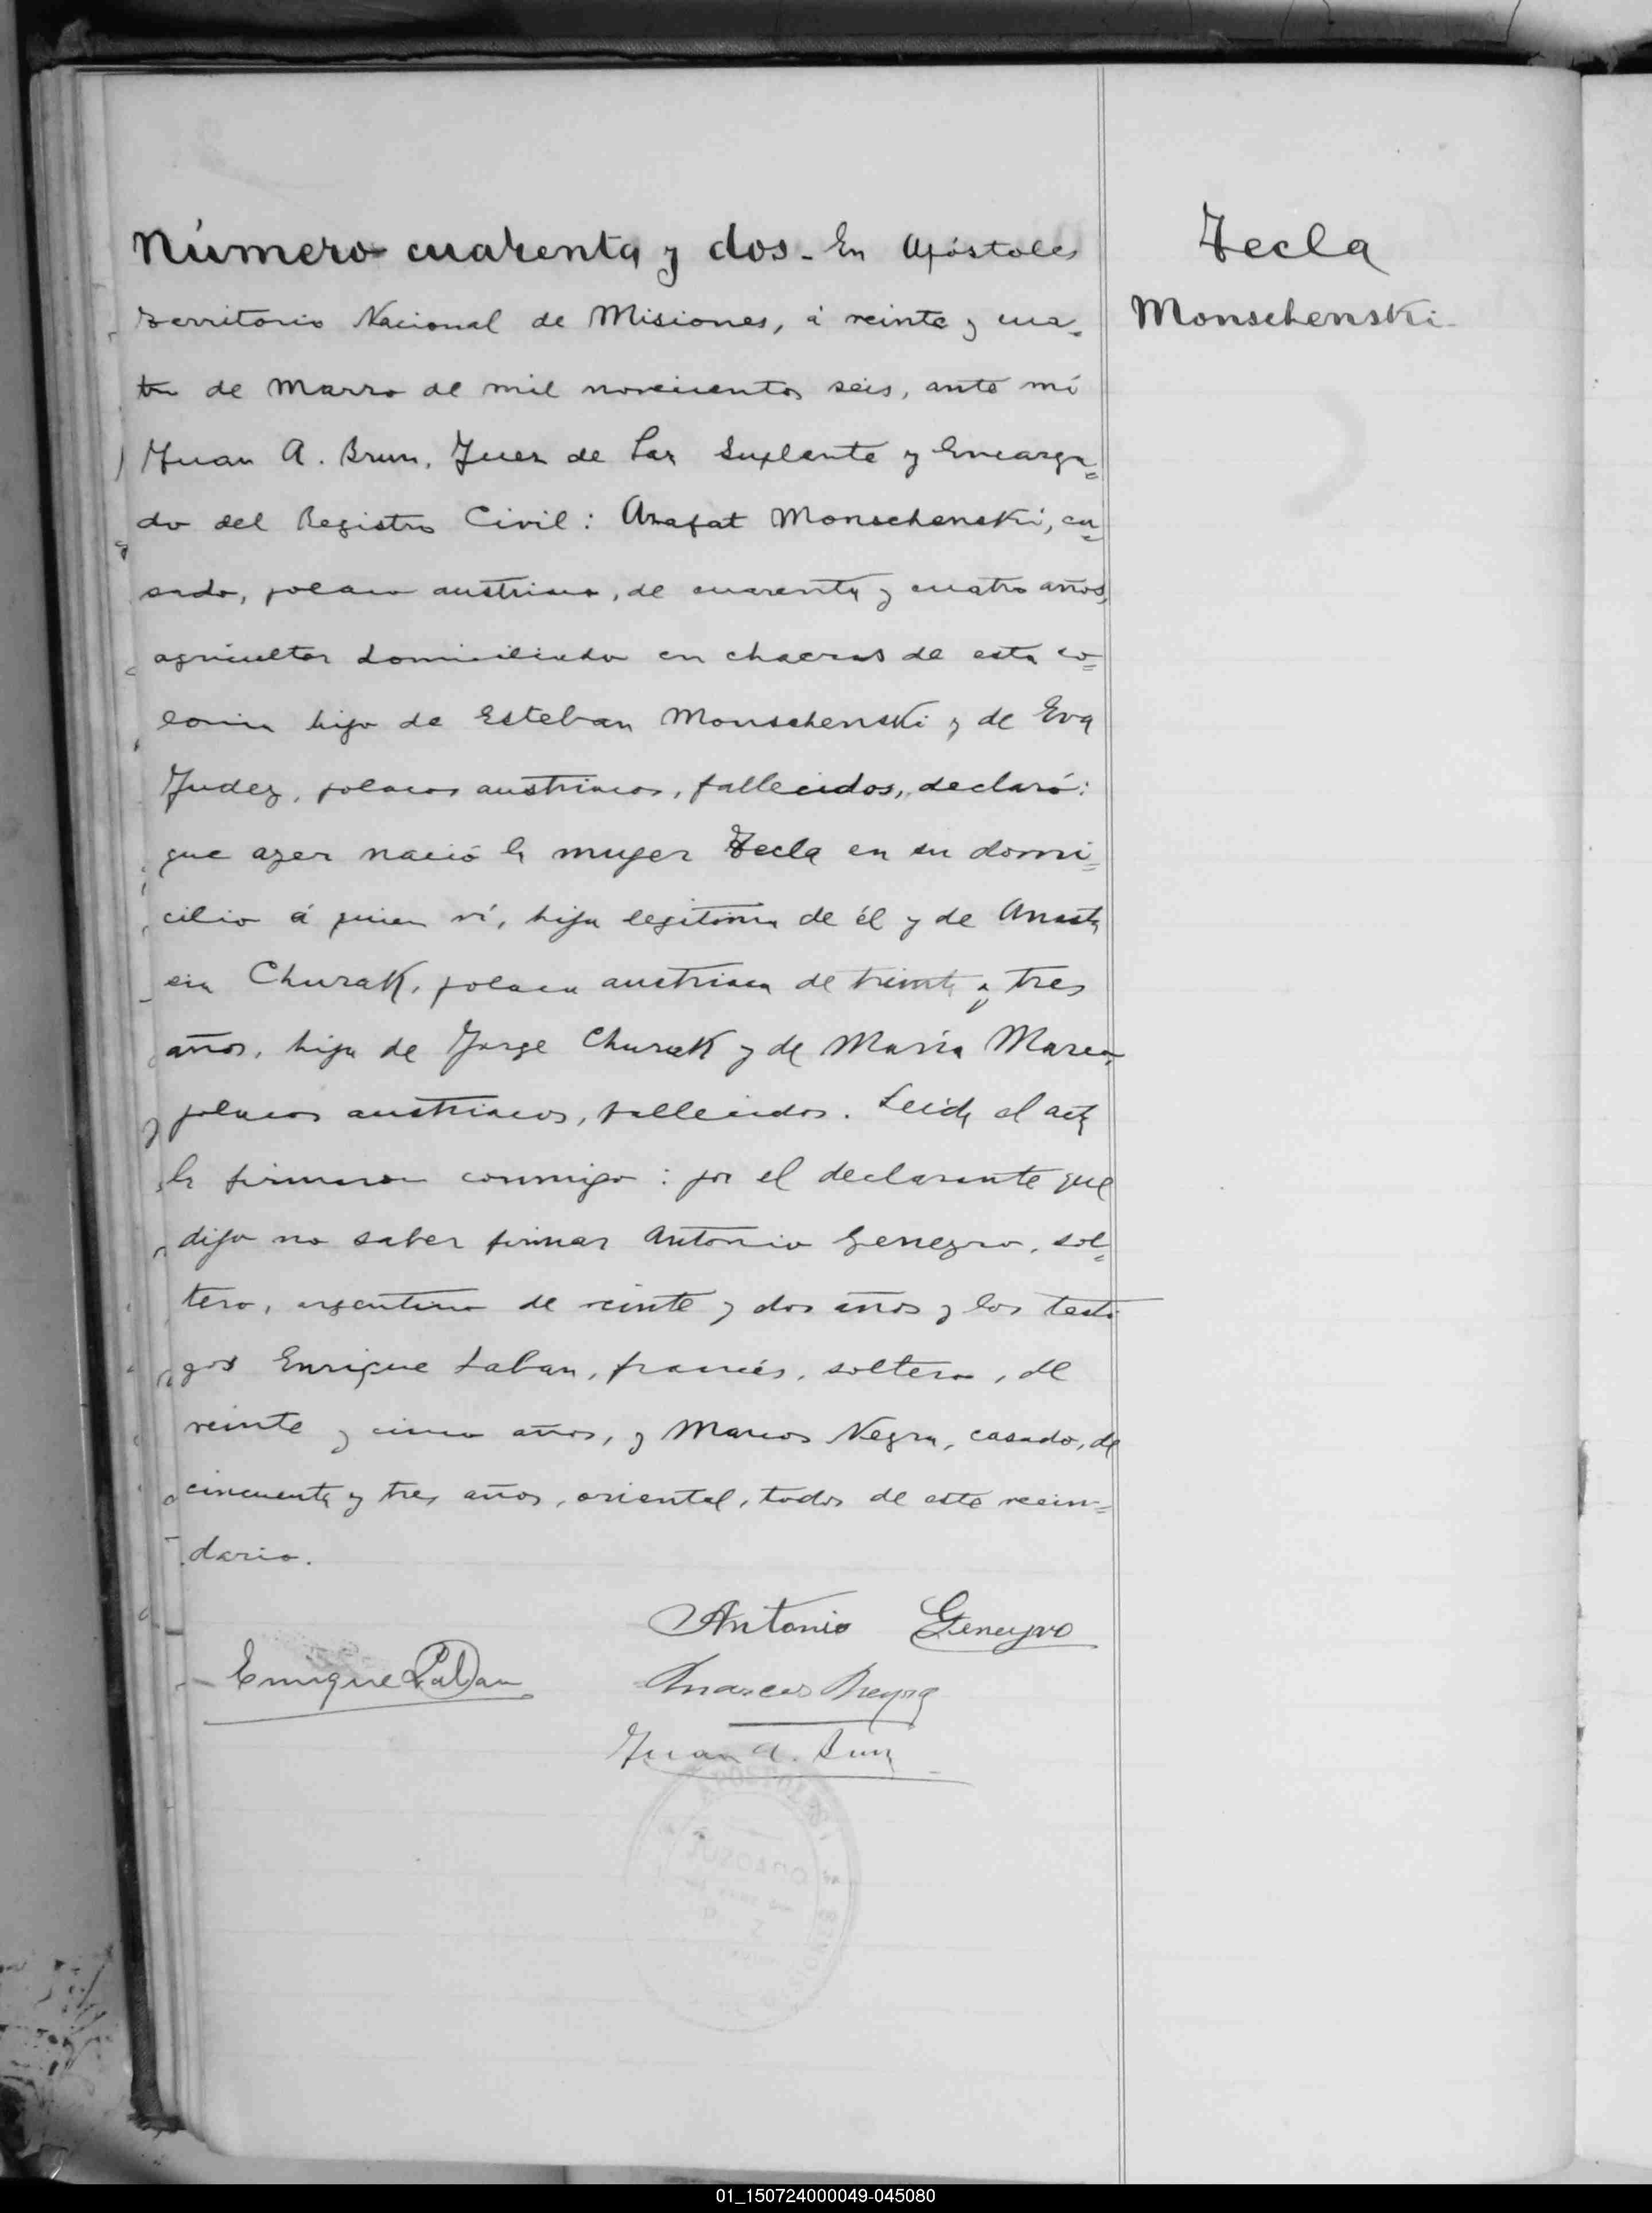 Número cuarenta y dos. En Apóstoles
Tecla
territorio Nacional de Misiones, á veinte y cua-
Monschenski
tro de Marzo de mil novecientos seis, ante mí
Juan A. Brun, Juez de Paz Suplente y Encarga=
do del Registro Civil: Arafat Monschenski, ca=
sado, polaco austriaco, de cuarenta y cuatro años,
agricultor domiciliado en chacras de esta co=
lonia hijo de Esteban Monschenski y de Eva
Judez, polacos austriacos, fallecidos, declaró:
que ayer nació la mujer Tecla en su domi=
cilio á quien ví, hija legítima de él y de Anasta
sia Churak, polaca austriaca de treinta y tres
años, hija de Jorge Churak y de María
polacos austriacos, fallecidos. Leida el acta
la firmaron conmigo: por el declarante que
dijo no saber firmar Antonio Geneyro, sol=
tero, argentino de veinte y dos años y los testi
gos Enrique Laban, francés, soltero, de
veinte y cinco años, y Marcos Neyra, casado, de
cincuenta y tres años, oriental, todos de este vecin=
dario.
Antonio Geneyro
Enrique Laban
Marcos Neyra
Juan A. Brun
01_150724000049-045080